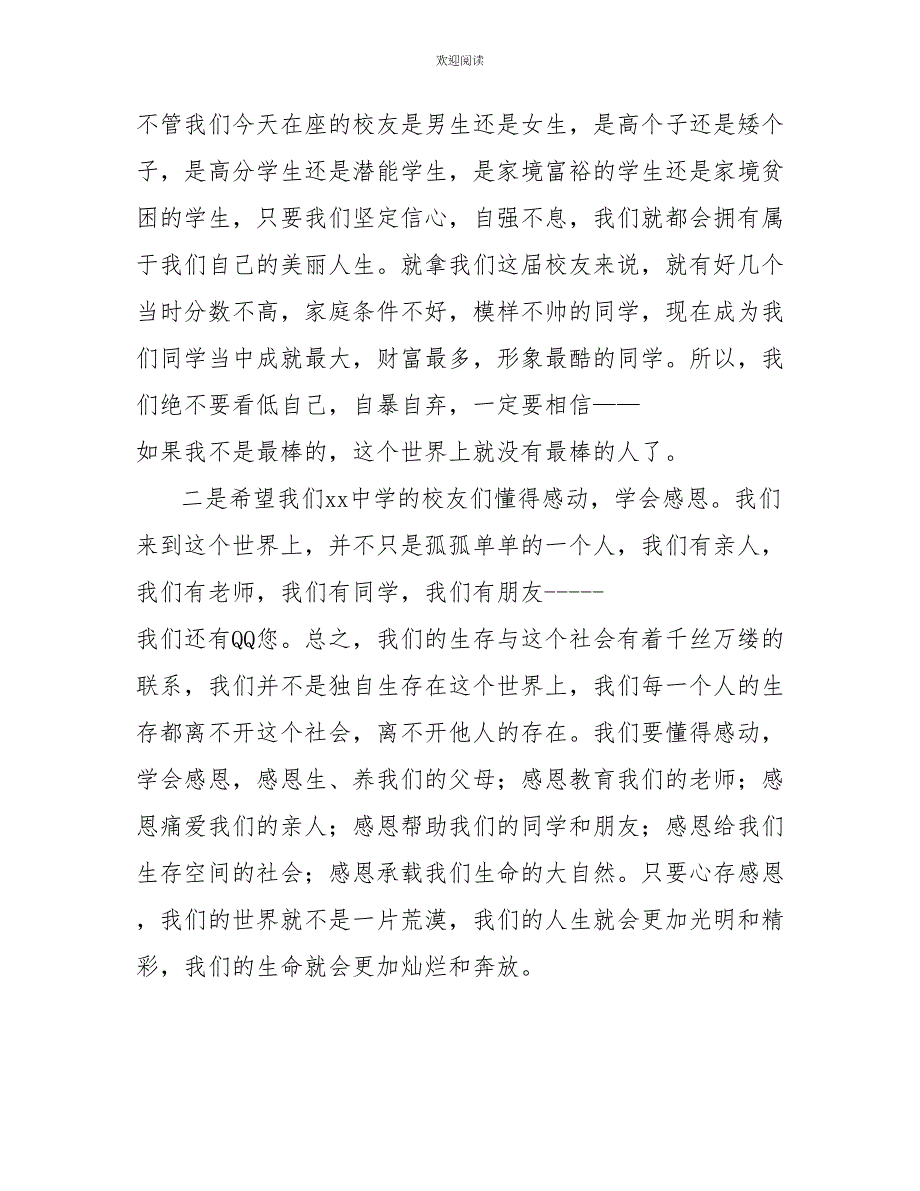 欢迎阅读
不管我们今天在座的校友是男生还是女生，是高个子还是矮个
子，是高分学生还是潜能学生，是家境富裕的学生还是家境贫
困的学生，只要我们坚定信心，自强不息，我们就都会拥有属
于我们自己的美丽人生。就拿我们这届校友来说，就有好几个
当时分数不高，家庭条件不好，模样不帅的同学，现在成为我
们同学当中成就最大，财富最多，形象最酷的同学。所以，我
们绝不要看低自己，自暴自弃，一定要相信——
如果我不是最棒的，这个世界上就没有最棒的人了。
二是希望我们xx中学的校友们懂得感动，学会感恩。我们
来到这个世界上，并不只是孤孤单单的一个人，我们有亲人，
我们有老师，我们有同学，我们有朋友-----
我们还有QQ您。总之，我们的生存与这个社会有着千丝万缕的
联系，我们并不是独自生存在这个世界上，我们每一个人的生
存都离不开这个社会，离不开他人的存在。我们要懂得感动，
学会感恩，感恩生、养我们的父母；感恩教育我们的老师；感
恩痛爱我们的亲人；感恩帮助我们的同学和朋友；感恩给我们
生存空间的社会；感恩承载我们生命的大自然。只要心存感恩
，我们的世界就不是一片荒漠，我们的人生就会更加光明和精
彩，我们的生命就会更加灿烂和奔放。